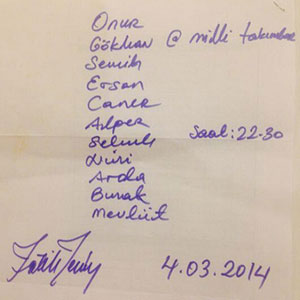 Onur
Gökhan @ milli takımlar
Semih
Ersan
Caner
Alper
Selçuk Saat: 22-30
Nuri
Arda
Burak
Mevlüt
Fatih Terim 4.03.2014